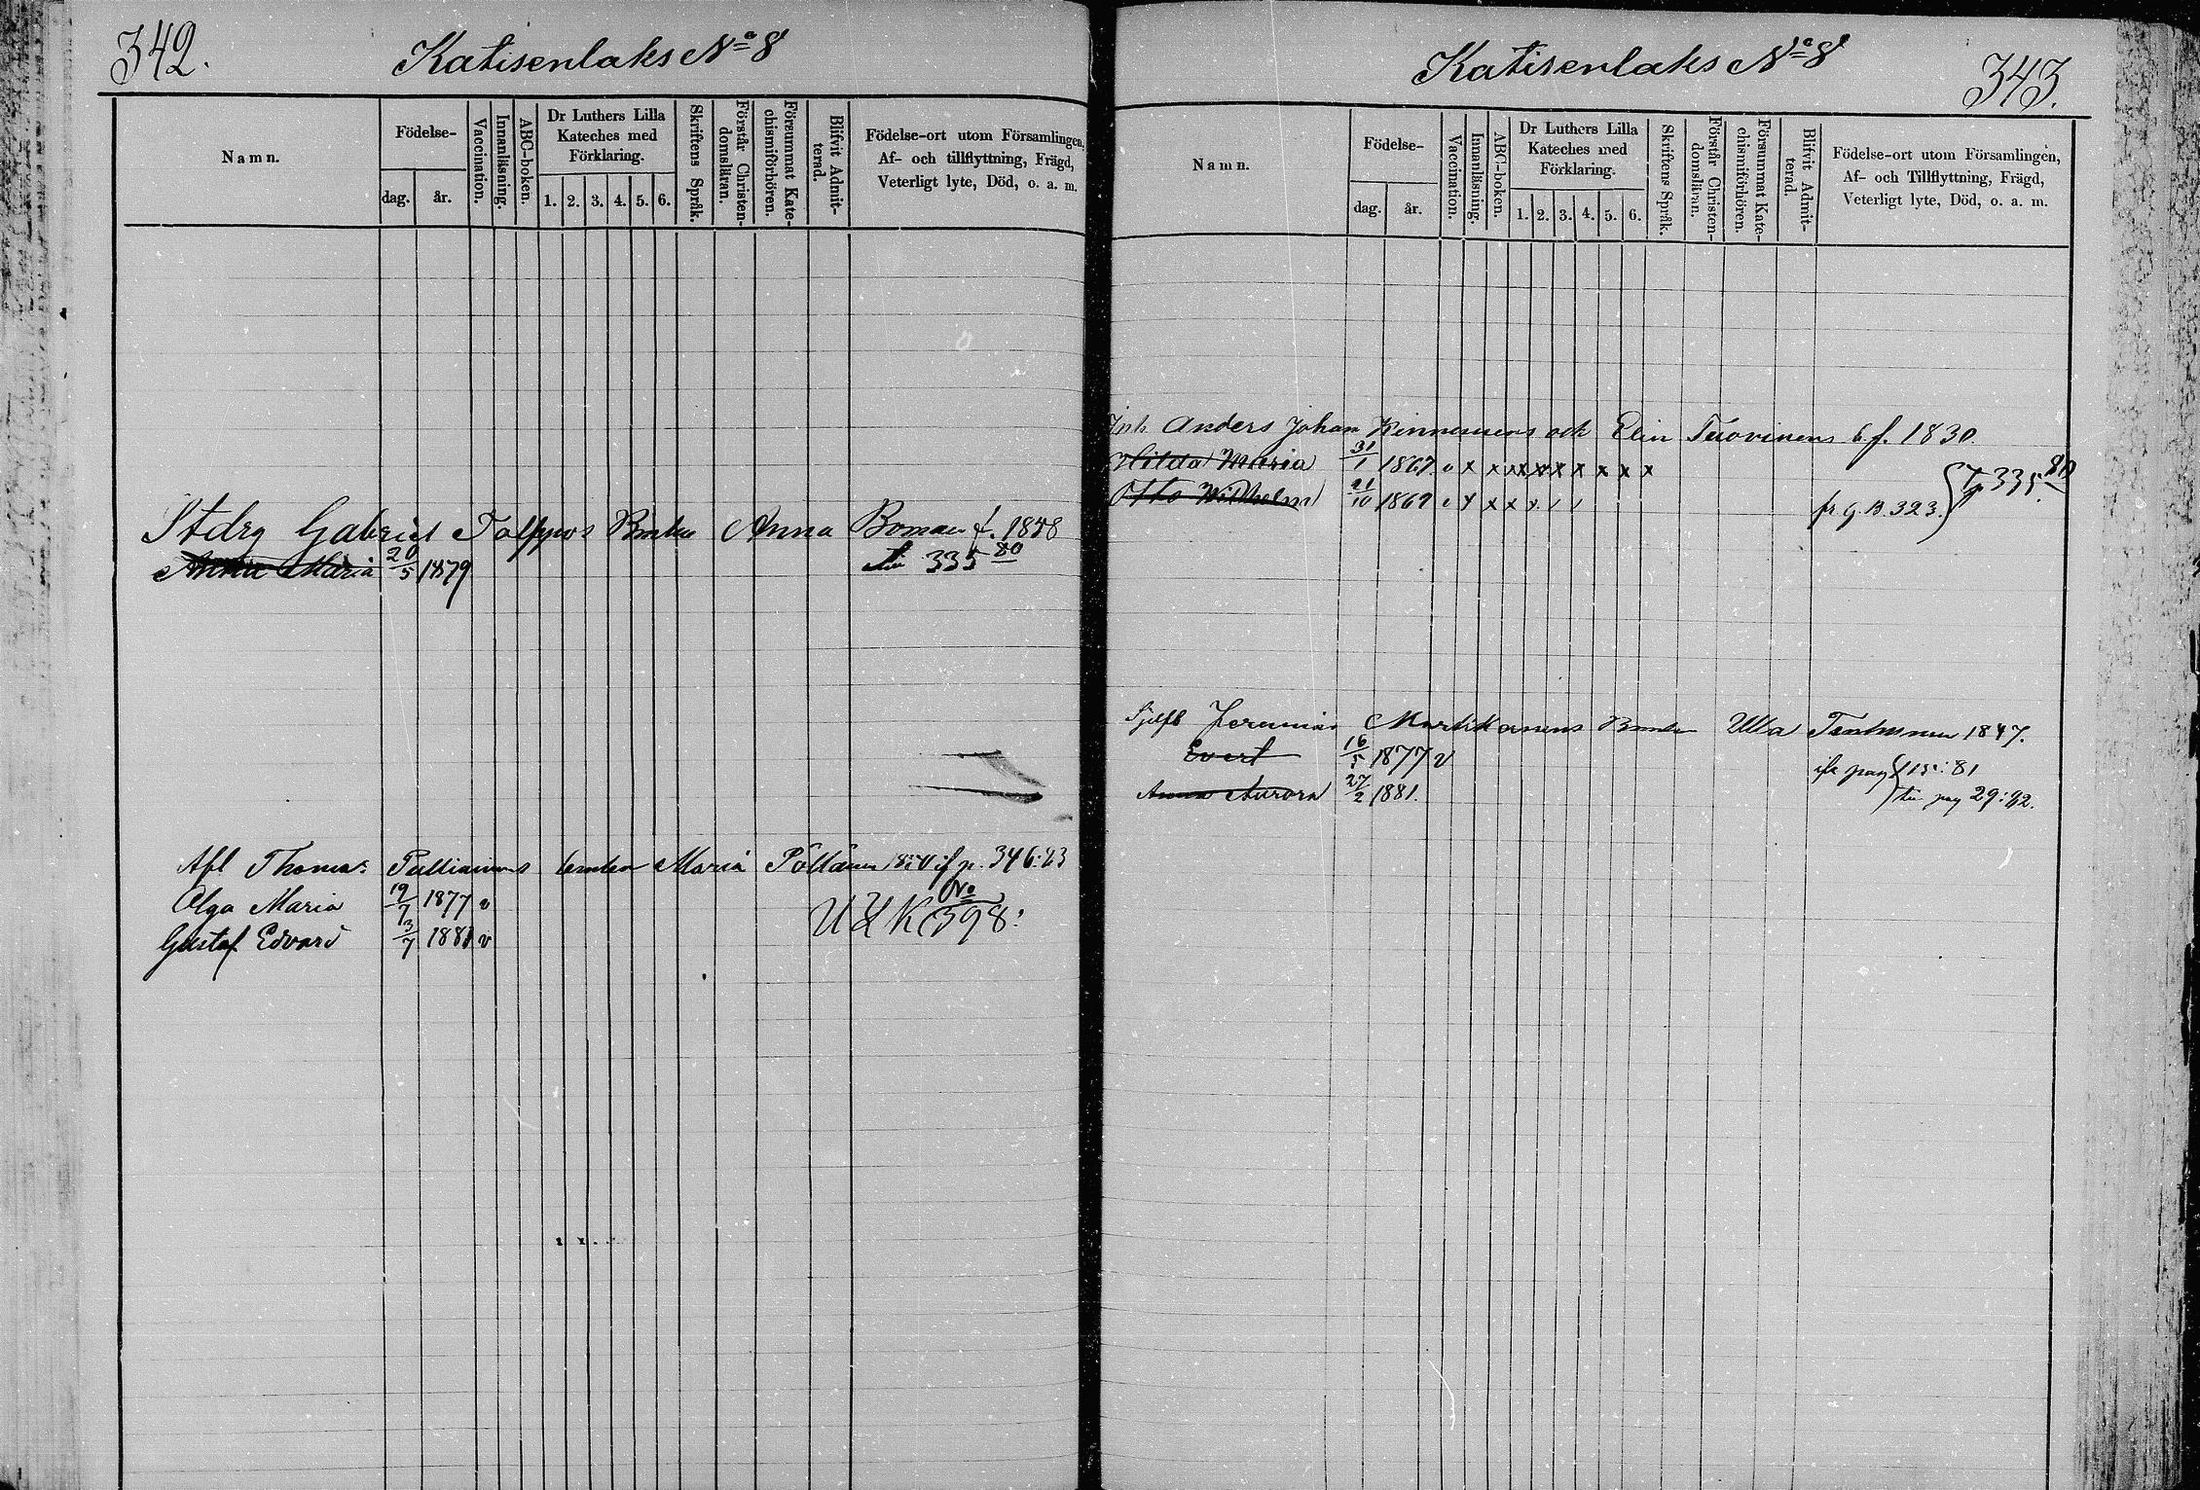 342.
Katisenlaks No 8
Namn.
Födelse-
dag.
år.
Vaccination.
Innanläsning.
ABC-boken.
Dr Luthers Lilla
Kateches med
Förklaring.
1. 2. 3. 4. 5. 6.
Skriftens Språk.
Förstår Christen-
domsläran.
Försummat Kate-
chismiförhören.
Blifvit Admit-
terad.
Födelse-ort utom Församlingen,
Af- och tillflyttning, Frägd,
Veterligt lyte, Död, o. a. m.
Stdrg Gabriel Anna Boman f. 1858
Anna Maria 20/5 1879 335 80
Afl Thomas Maria p. 346:23
Olga Maria 19/7 1877 v
No
Gustaf Edvard 3/7 1881 v 398:
Katisenlaks No 8
343.
Namn.
Födelse-
dag.
år.
Vaccination.
Innanläsning.
ABC-boken.
Dr Luthers Lilla
Kateches med
Förklaring.
1. 2. 3. 4. 5. 6.
Skriftens Språk.
Förstår Christen-
domsläran.
Försummat Kate-
chismiförhören.
Blifvit Admit-
terad.
Födelse-ort utom Församlingen,
Af- och Tillflyttning, Frägd,
Veterligt lyte, Död, o. a. m.
Inh. Anders Johan Kinnunens och Elin b. f. 1830.
Hilda Maria 31/1 1867 v x x x x x x x x x
Otto Wilhelm 21/10 1869 v x x x x fr g B. 323. 335 80
Sjelfb Jeremias Martikainens Ulla 1847.
Evert 16/5 1877 v pag 15:81
Anna Aurora 27/2 1881. pag 29:82.